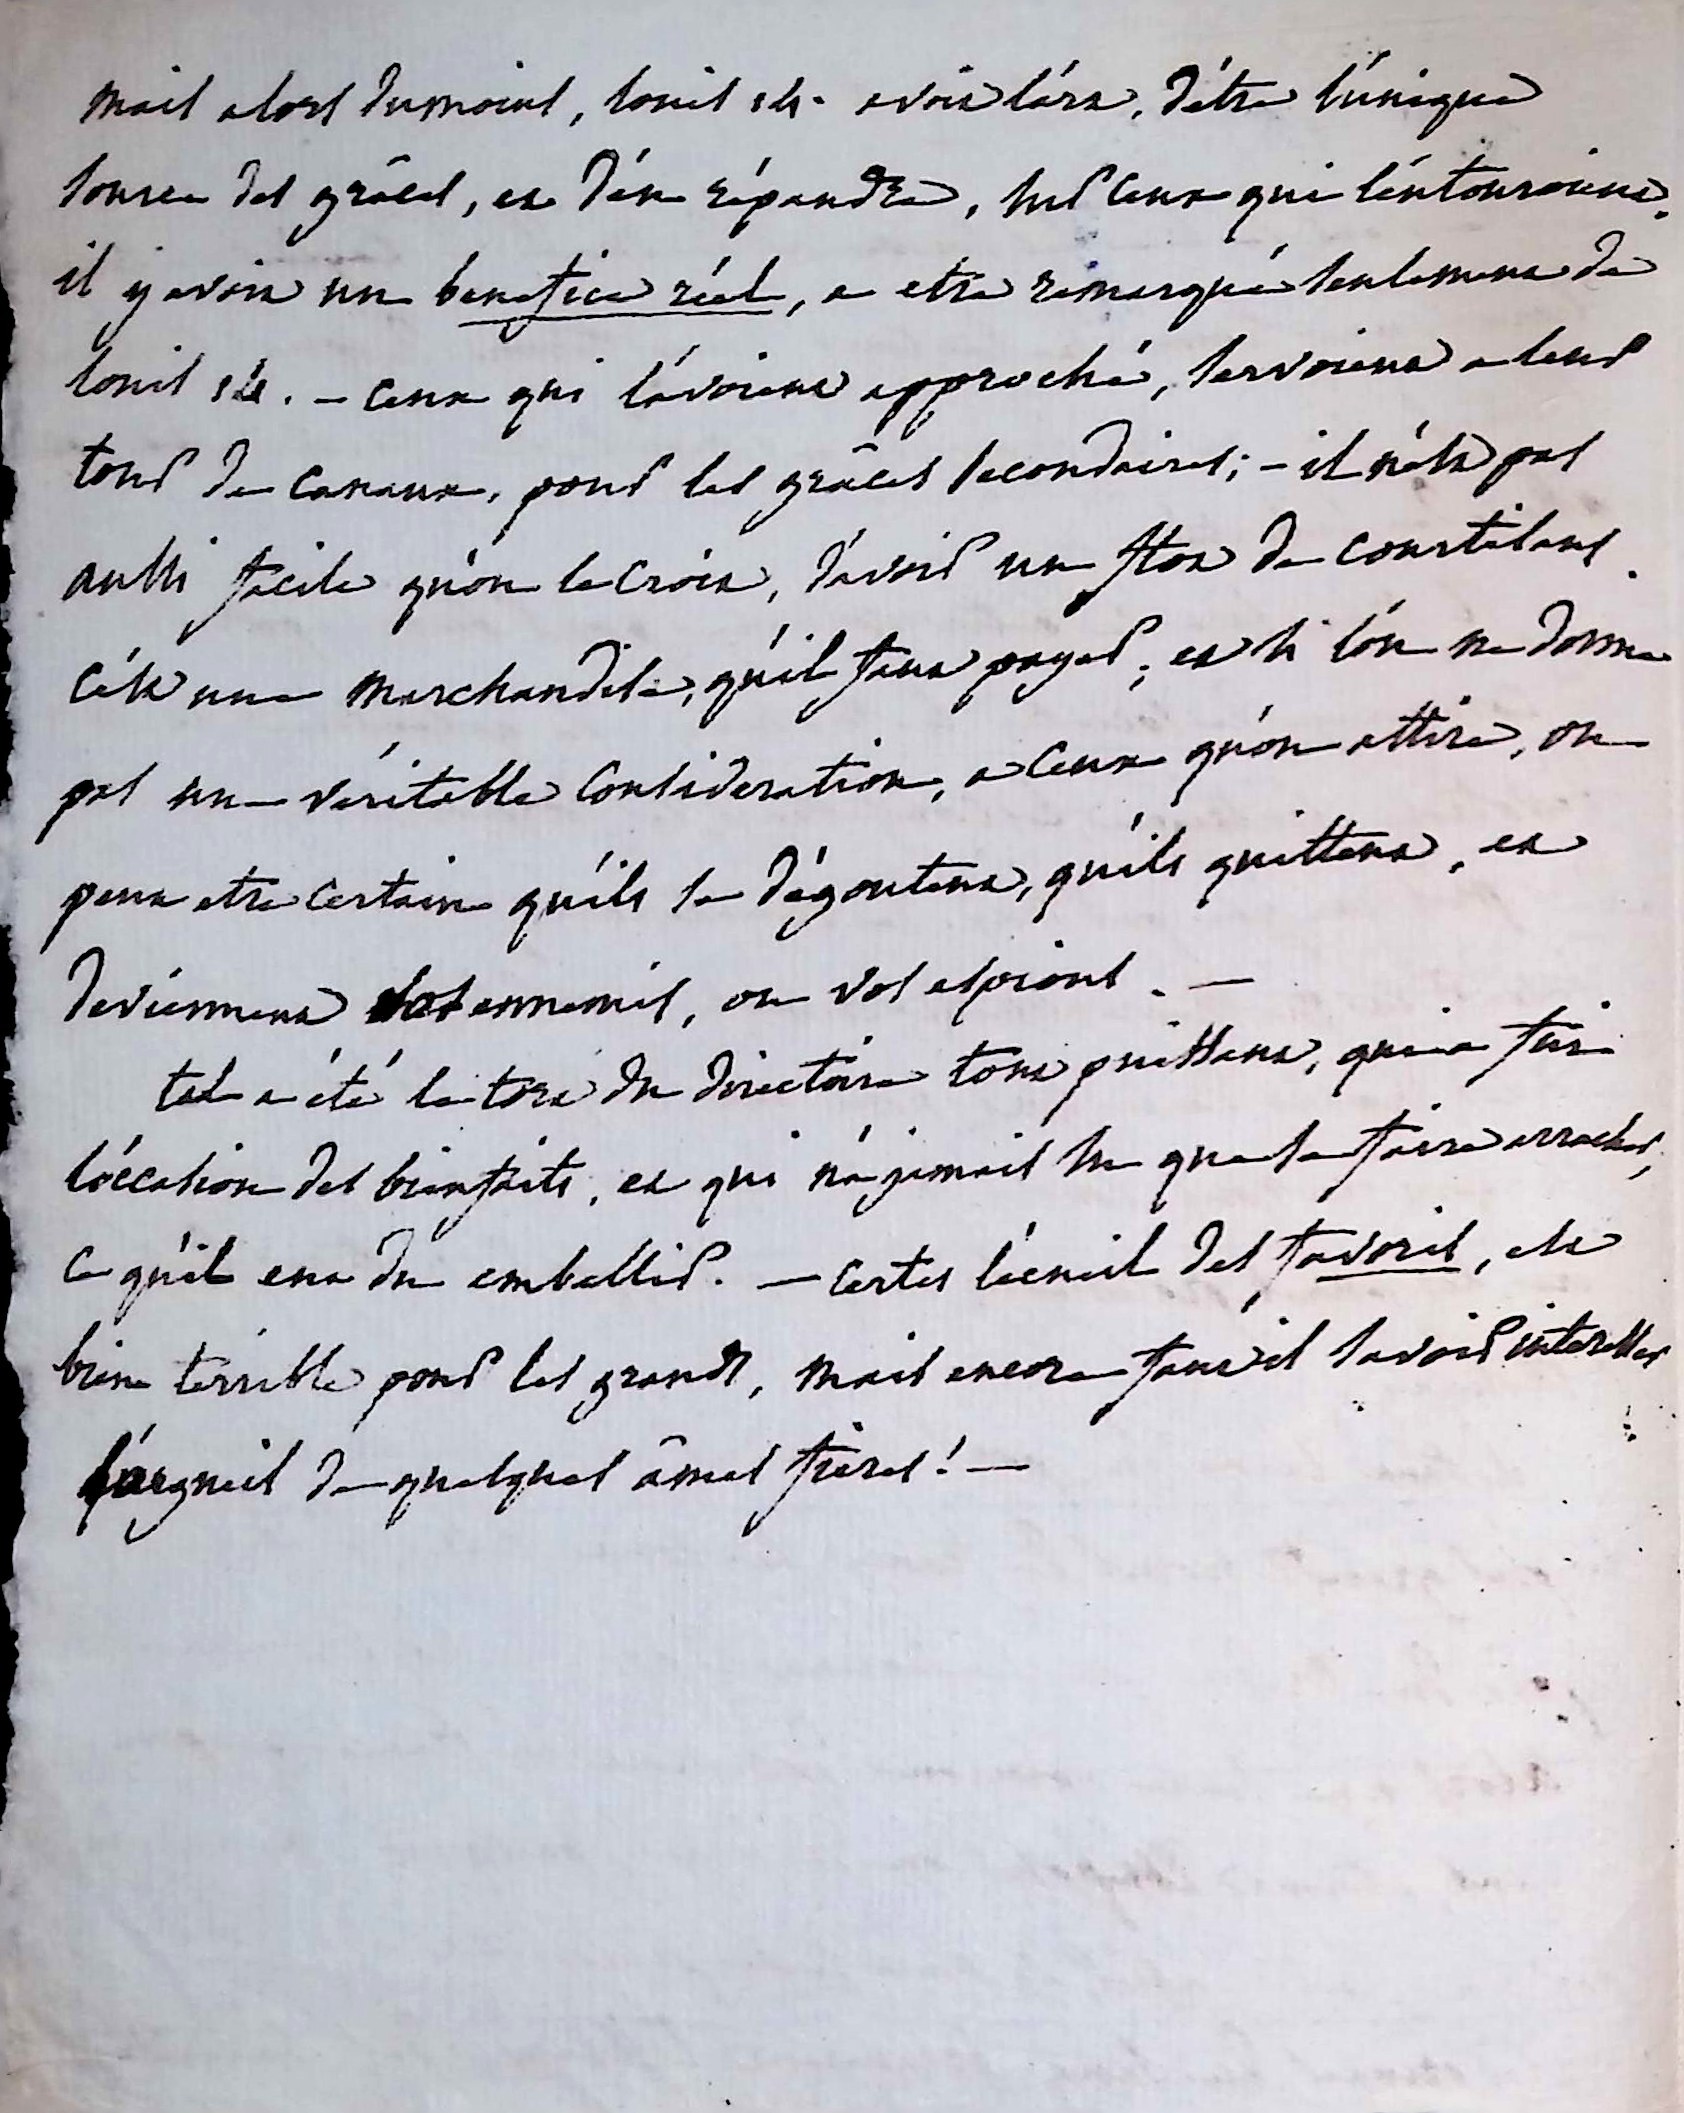 mais alors dumoins, louis 14. avoit l'árt, d'être l'únique
source des grâces, et d'én répandre, sur ceux qui l'éntouroient.
il y avoit un benefice réel, a etre remarqué seulement de
louis 14. – ceux qui l'ávoient approché, servoient a leur
tour de canaux, pour les grâces secondaires; – il n'ést pas
aussi facile qu'ón le croit, d'ávoir un flot de courtisans.
c'ést une marchandise, qu'il faut payer; et si l'ón ne donne
pas une véritable consideration, a ceux qu'ón attire, on
peut etre certain qu'ils se dégoutent, qu'ils quittent, et
deviennent vos ennemis, ou vos espions. –
tel a été le tort du directoire tout puissant, qui a fui
l'óccasion des bienfaits, et qui n'á jamais su que se faire arracher,
ce qu'il eut du embellir. – certes l'écueil des favoris, est
bien terrible pour les grands, mais encore faut il savoir interesser
l'órgueil de quelques âmes fieres! –